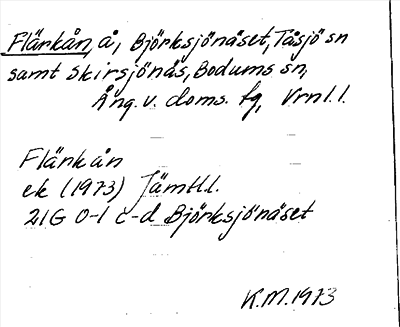 Flärkån, å, Björksjönäset, Tåsjö sn
samt Skirsjönäs, Bodums sn,
Ång. v. doms. fg, Vrnl.l.
Flärkån
ek (1973) Jämtl.l.
21G 0-1 c-d Björksjönäset
K.M. 1973